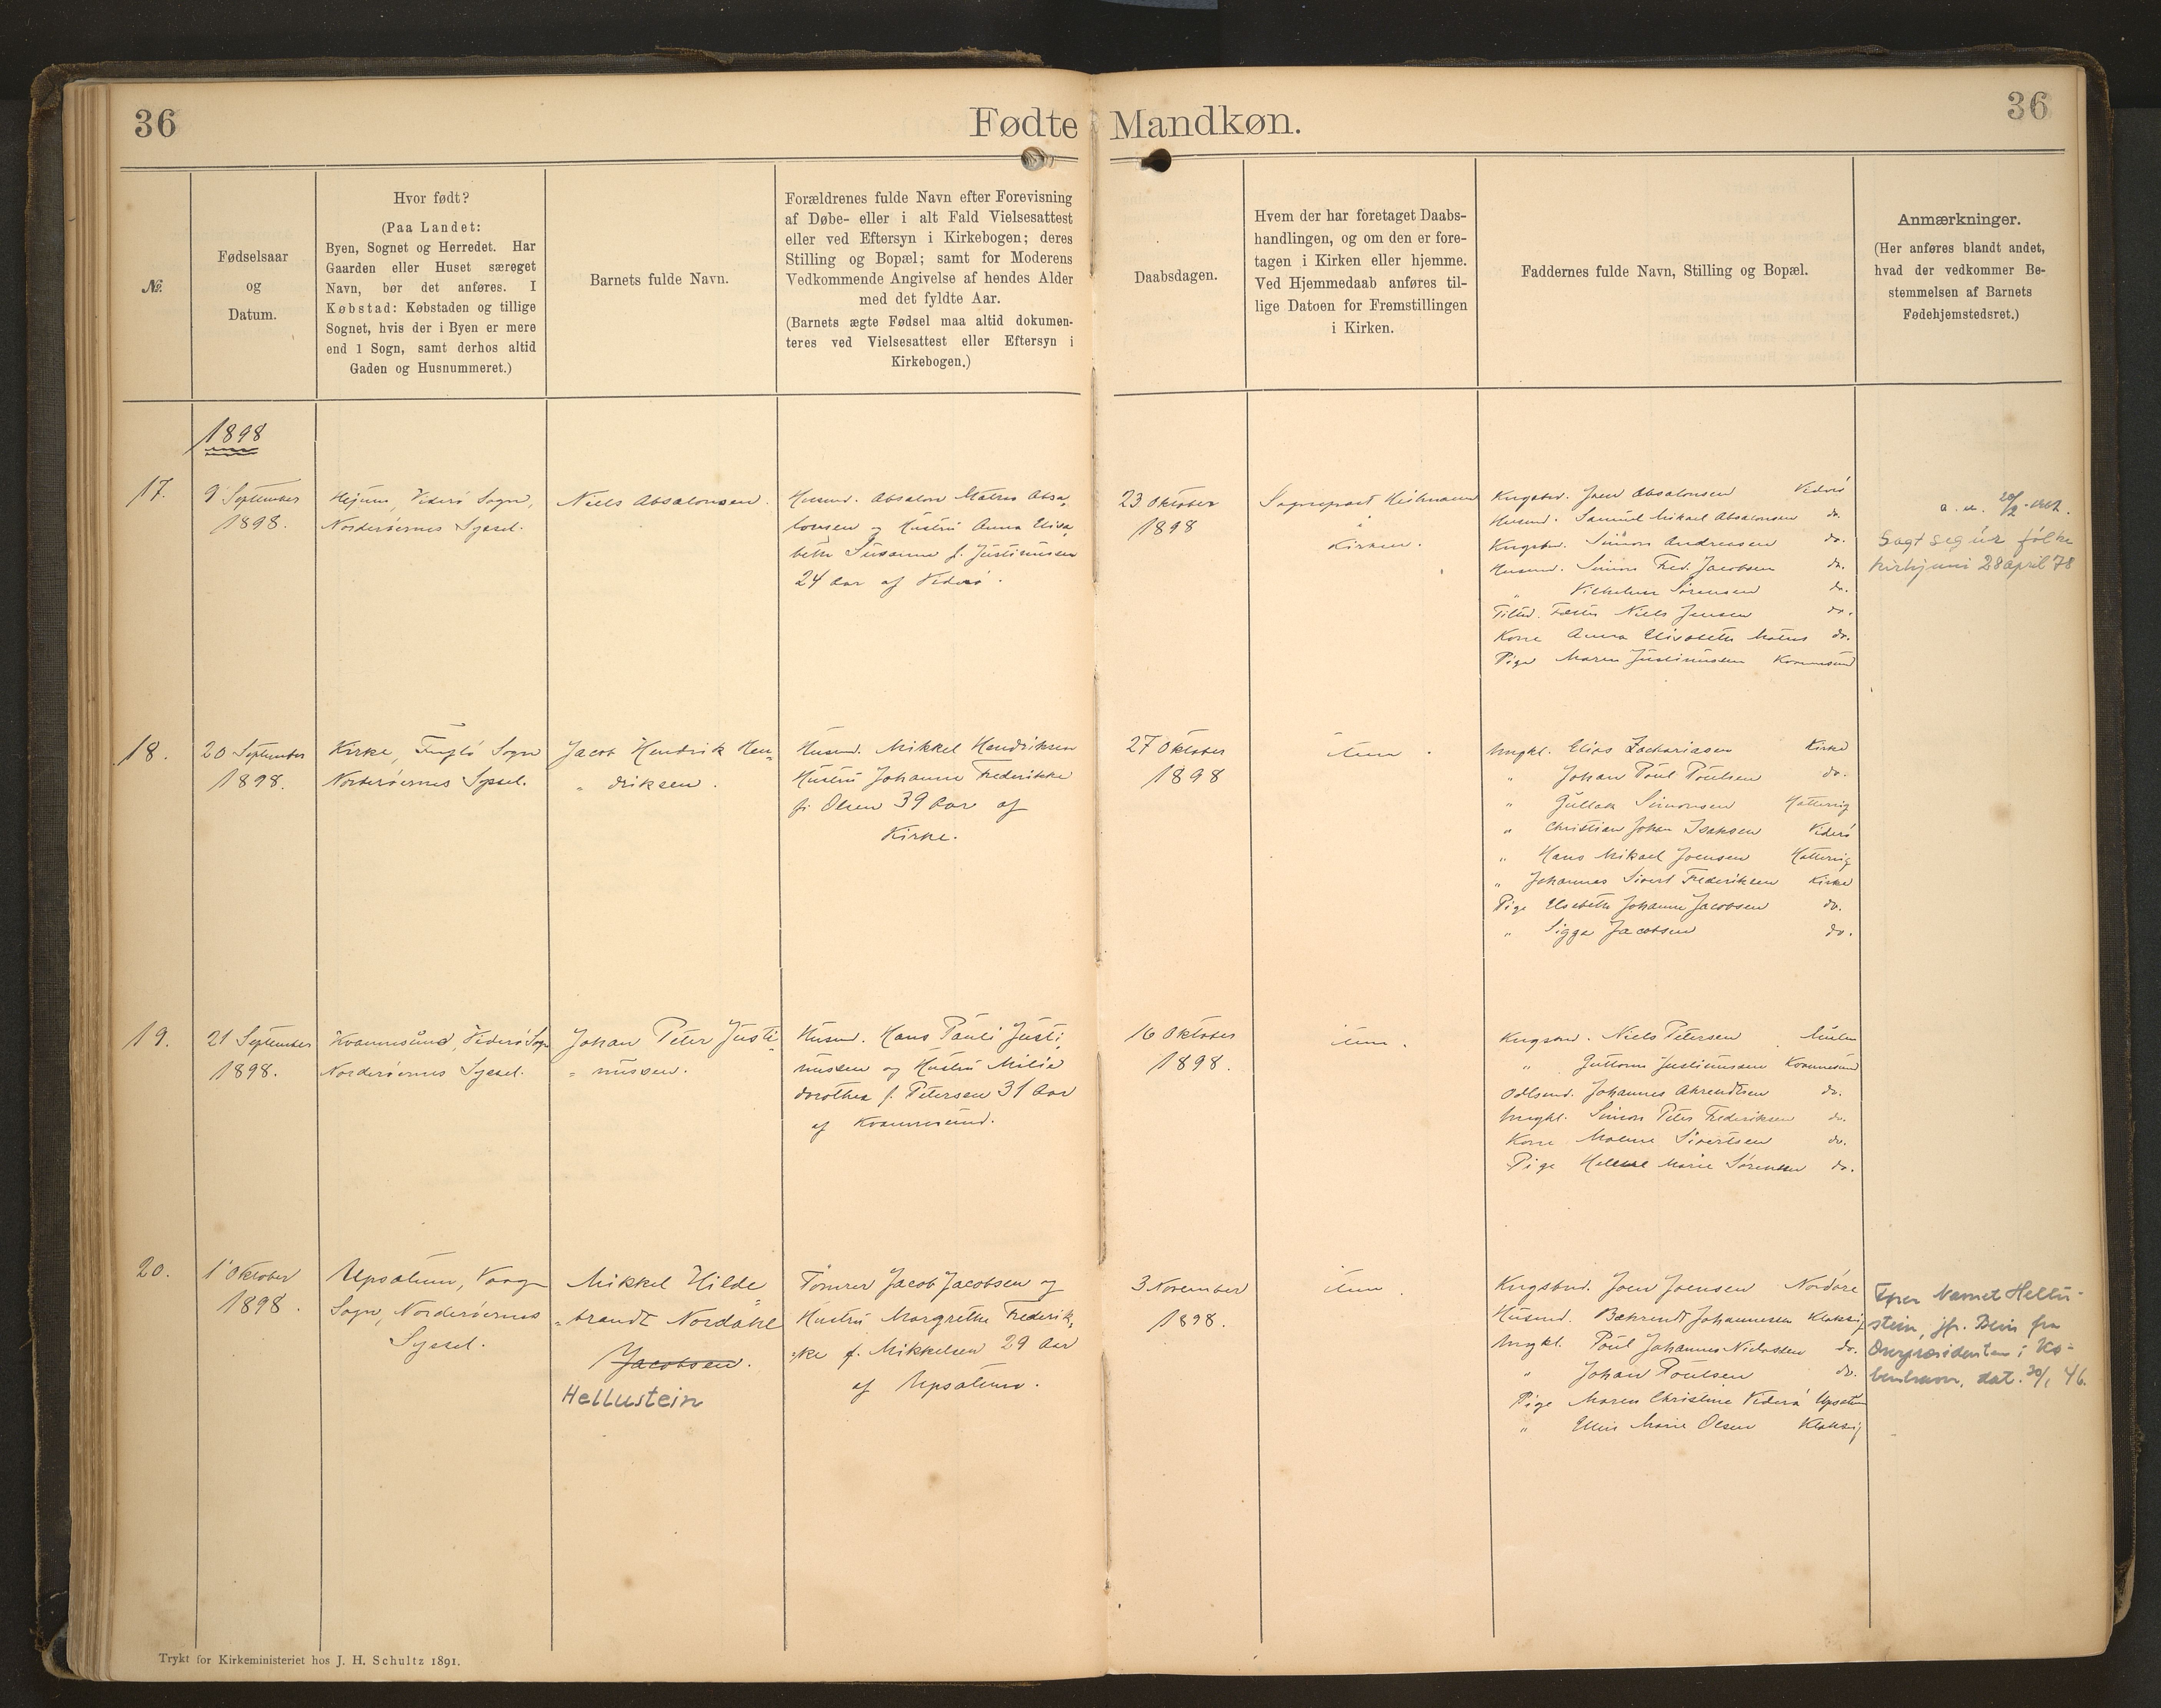 36
Fødte Mandkøn.
36
№.
Fødselsaar
og
Datum.
Hvor født?
(Paa Landet:
Byen, Sognet og Herredet. Har
Gaarden eller Huset særeget
Navn, bør det anføres. I
Købstad: Købstaden og tillige
Sognet, hvis der i Byen er mere
end 1 Sogn, samt derhos altid
Gaden og Husnummeret.)
Barnets fulde Navn.
Forældrenes fulde Navn efter Forevisning
af Døbe- eller i alt Fald Vielsesattest
eller ved Eftersyn i Kirkebogen; deres
Stilling og Bopæl; samt for Moderens
Vedkommende Angivelse af hendes Alder
med det fyldte Aar.
(Barnets ægte Fødsel maa altid dokumen-
teres ved Vielsesattest eller Eftersyn i
Kirkebogen.)
Daabsdagen.
Hvem der har foretaget Daabs-
handlingen, og om den er fore-
tagen i Kirken eller hjemme.
Ved Hjemmedaab anføres til-
lige Datoen for Fremstillingen
i Kirken.
Faddernes fulde Navn, Stilling og Bopæl.
Anmærkninger.
(Her anføres blandt andet,
hvad der vedkommer Be-
stemmelsen af Barnets
Fødehjemstedsret.)
1898
17.
9 September
1898.
Viderö Sogn,
Norderöernes Sysel.
Niels Absalonsen.
Husmd. Absalon Matras Absa-
lonsen og Hustru Anna Elisa-
beth Susanna f. Justinussen
24 Aar af Viderö.
23 Oktober
1898
Sognepræst
i
Kirken.
Kngsbd. Joen Absalonsen Viderö
Husmd. Samuel Mikael Absalonsen do.
Kngsbd. Simon Andreasen do.
Husmd. Simon Fred. Jacobsen do.
" Vilhelm Sørensen do.
Niels Jensen do.
Kone Anna Elisabeth Matras do.
Pige Maren Justinussen Kvannesund
Sagt seg úr fólka
kirkjuni 28 april 78
18.
20 September
1898.
Kirke, Fuglö Sogn
Norderöernes Sysel.
Jacob Hendrik Hen-
driksen.
Husmd. Mikkel Hendriksen
Hustru Johanne Frederikke
f. Olsen 39 Aar af
Kirke.
27 Oktober
1898
item.
Ungkl. Elias Zachariasen Kirke
" Johan Poul Poulsen do.
" Gullak Simonsen Hattervig
" Christian Johan Isaksen Viderö
" Hans Mikael Joensen Hattervig
" Johannes Sivert Frederiksen Kirke
Pige Elsebeth Johanne Jacobsen do.
" Sigga Jacobsen do.
19.
21 September
1898.
Kvannesund, Viderö Sogn
Norderöernes Sysel.
Johan Peter Justi-
nussen.
Husmd. Hans Pauli Justi-
nussen og Hustru Milia
Dorothea f. Petersen 31 Aar
af Kvannesund.
16 Oktober
1898.
item.
Kngsbd. Niels Petersen Mulen
" Guttorm Justinussen Kvannesund
Odlsmd. Johannes Akrendtsen do.
Ungkl. Simon Peter Frederiksen do.
Kone Malene Sivertsen do.
Pige Helene Marie Sørensen do.
20.
1 Oktober
1898.
Upsalum, Vaags
Sogn, Norderöernes
Sysel.
Mikkel Hilde-
brandt Nordahl
Jacobsen.
Hellustein
Tömrer Jacob Jacobsen og
Hustru Margrethe Frederik-
ke f. Mikkelsen 29 Aar
af Upsalum.
3 November
1898.
item.
Kngsbnd. Joen Joensen Nordöre
Husmd. Bæhrendt Johannesen Klaksvig
Ungkl. Poul Johannes Niclassen do.
" Johan Poulsen do.
Pige Maren Christine Viderö Upsalum
" Ellen Marie Olsen Klaksvig
Navnet Hellu-
stein, jfr. Bevis fra
Overpræsidenten i Kö-
benhavn, dat. 30/1 46.
Trykt for Kirkeministeriet hos J. H. Schultz 1891.